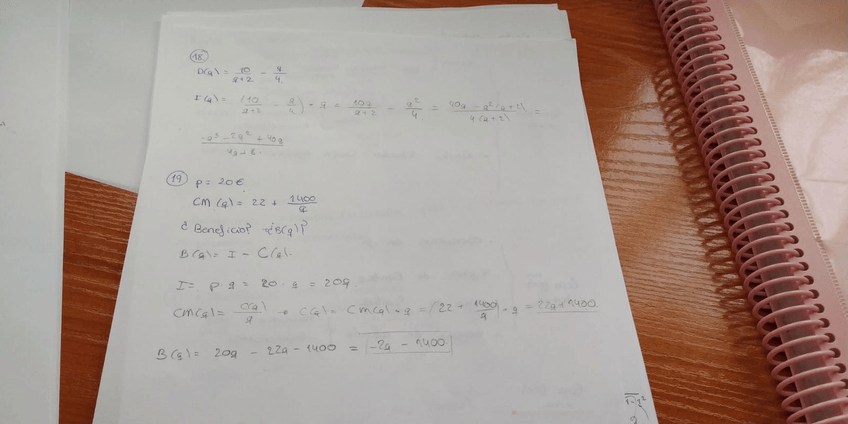 18
D(q) = 10/(q+2) - q/4
I(q) = (10/(q+2) - q/4) · q = 10q/(q+2) - q²/4 = (40q - q²(q+2))/(4(q+2)) =
(-q³ - 2q² + 40q)/(4q+8)
19 p = 20€.
CM(q) = 22 + 1400/q
¿Beneficio? → ¿B(q)?
B(q) = I - C(q).
I = p · q = 20 · q = 20q
CM(q) = C(q)/q → C(q) = CM(q) · q = (22 + 1400/q) · q = 22q + 1400.
B(q) = 20q - 22q - 1400 = -2q - 1400